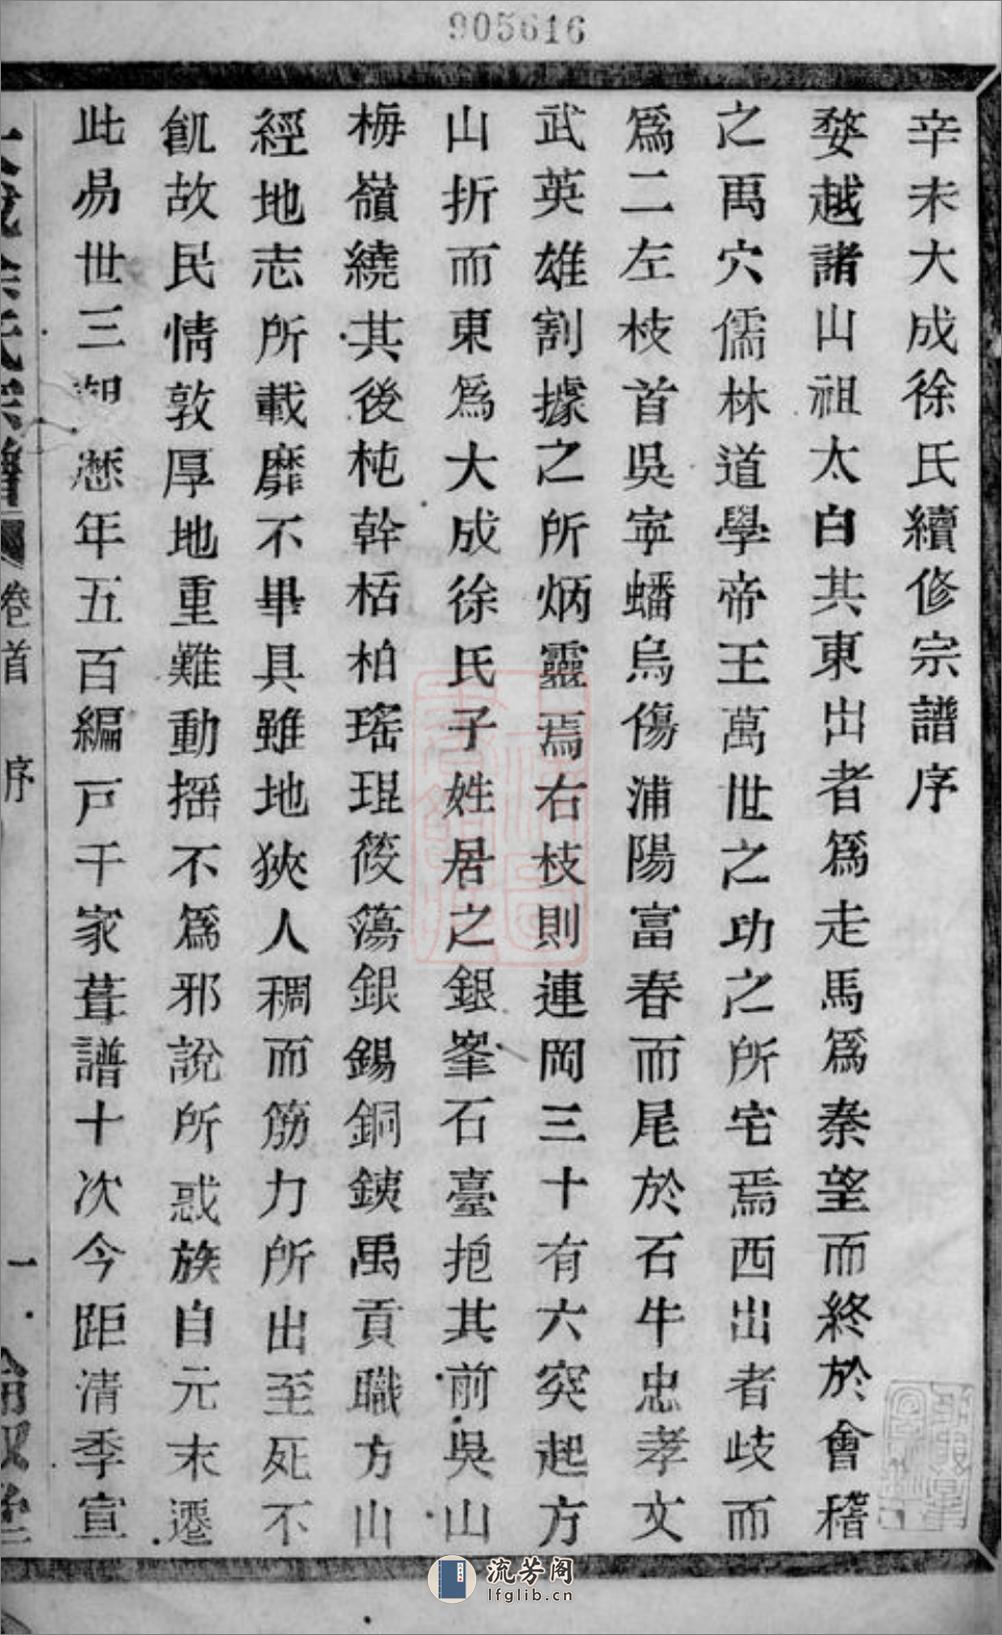 905616
辛未大成徐氏續修宗譜序
婺越諸山祖太白其東出者爲走馬爲秦望而終於會稽
之禹穴儒林道學帝王萬世之功之所宅焉西出者歧而
爲二左枝首吳寧蟠烏傷浦陽富春而尾於石牛忠孝文
武英雄割據之所炳靈焉右枝則連岡三十有六突起方
山折而東爲大成徐氏子姓居之銀峯石臺抱其前吳山
梅嶺繞其後杶幹栝柏瑤琨筱簜銀錫銅鐵禹貢職方山
經地志所載靡不畢具雖地狹人稠而筋力所出至死不
飢故民情敦厚地重難動搖不爲邪說所惑族自元末遷
此易世三朝歷年五百編戸千家葺譜十次今距清季宣
徐氏宗譜 卷首 序 一 倫敘堂
流芳阁
lfglib.cn